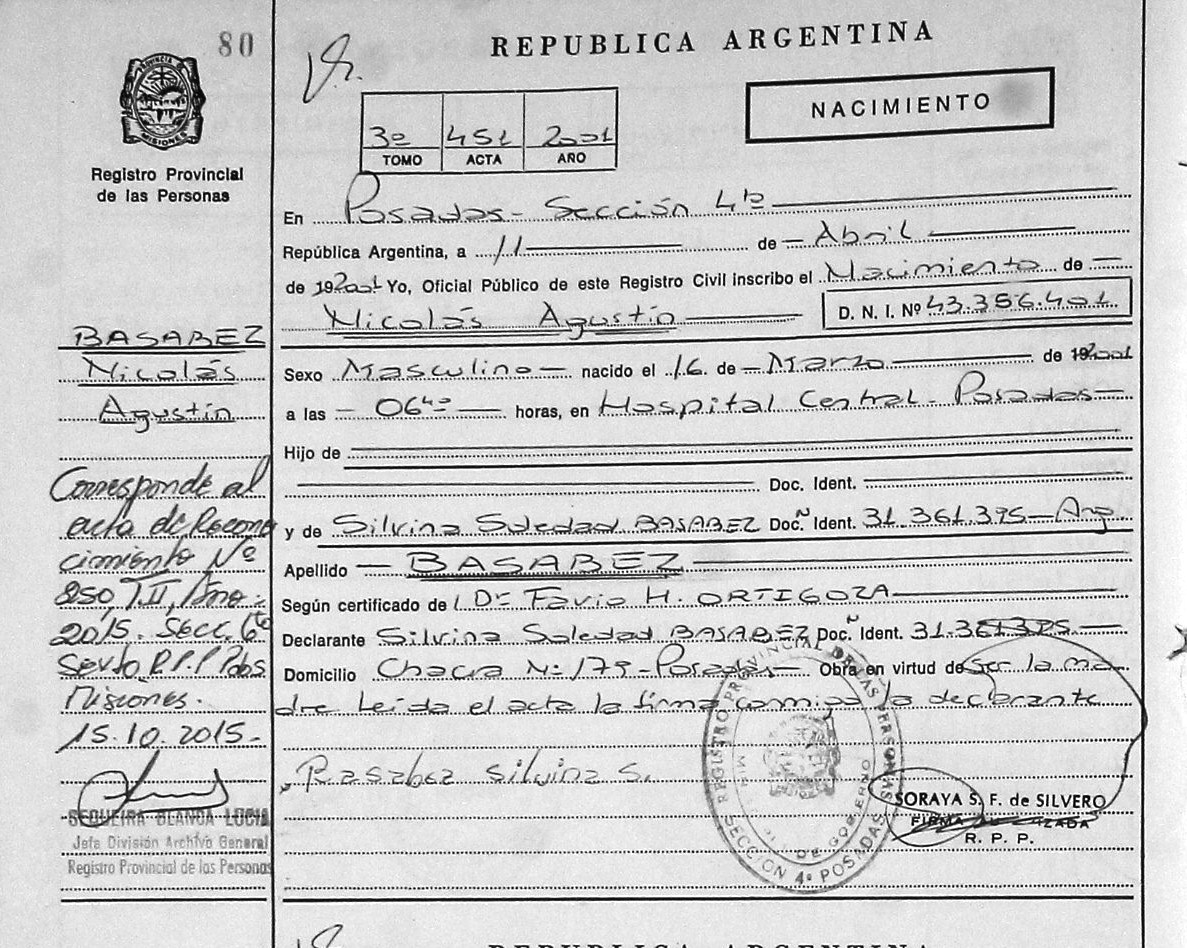 80
REPUBLICA ARGENTINA
NACIMIENTO
PROVINCIA DE MISIONES
Registro Provincial
de las Personas
3º 451 2001
TOMO ACTA AÑO
En Posadas - Sección 4ta
República Argentina, a 11 de Abril
de 192001 Yo, Oficial Público de este Registro Civil inscribo el Nacimiento de
Nicolás Agustín D. N. I. Nº 43.356.401
Sexo Masculino nacido el 16 de Marzo de 192001
a las 06 40 horas, en Hospital Central - Posadas
Hijo de
Doc. Ident.
y de Silvina Soledad BASABEZ Doc. Ident. 31.361.395 - Arg
Apellido BASABEZ
Según certificado de l Dr Favio H. ORTIGOZA
Declarante Silvina Soledad BASABEZ Doc. Ident. 31.361.395
Domicilio Chacra Nº 179 - Posadas Obra en virtud de Ser la ma
dre Leída el acta la firma conmigo la declarante
Basabez Silvina S.
SORAYA S. F. de SILVERO
FIRMA AUTORIZADA
R. P. P.
REGISTRO PROVINCIAL DE LAS PERSONAS
DE GOBIERNO
SECCION 4ª POSADAS
BASABEZ
Nicolás
Agustín
Corresponde al
acta de Recono
cimiento Nº
250, T II, Año:
2015. Secc. 6ta
Sexto R.P.P Pdas
Misiones.
15.10.2015-
SEQUEIRA BLANCA LUCIA
Jefa División Archivo General
Registro Provincial de las Personas
REPUBLICA ARGENTINA